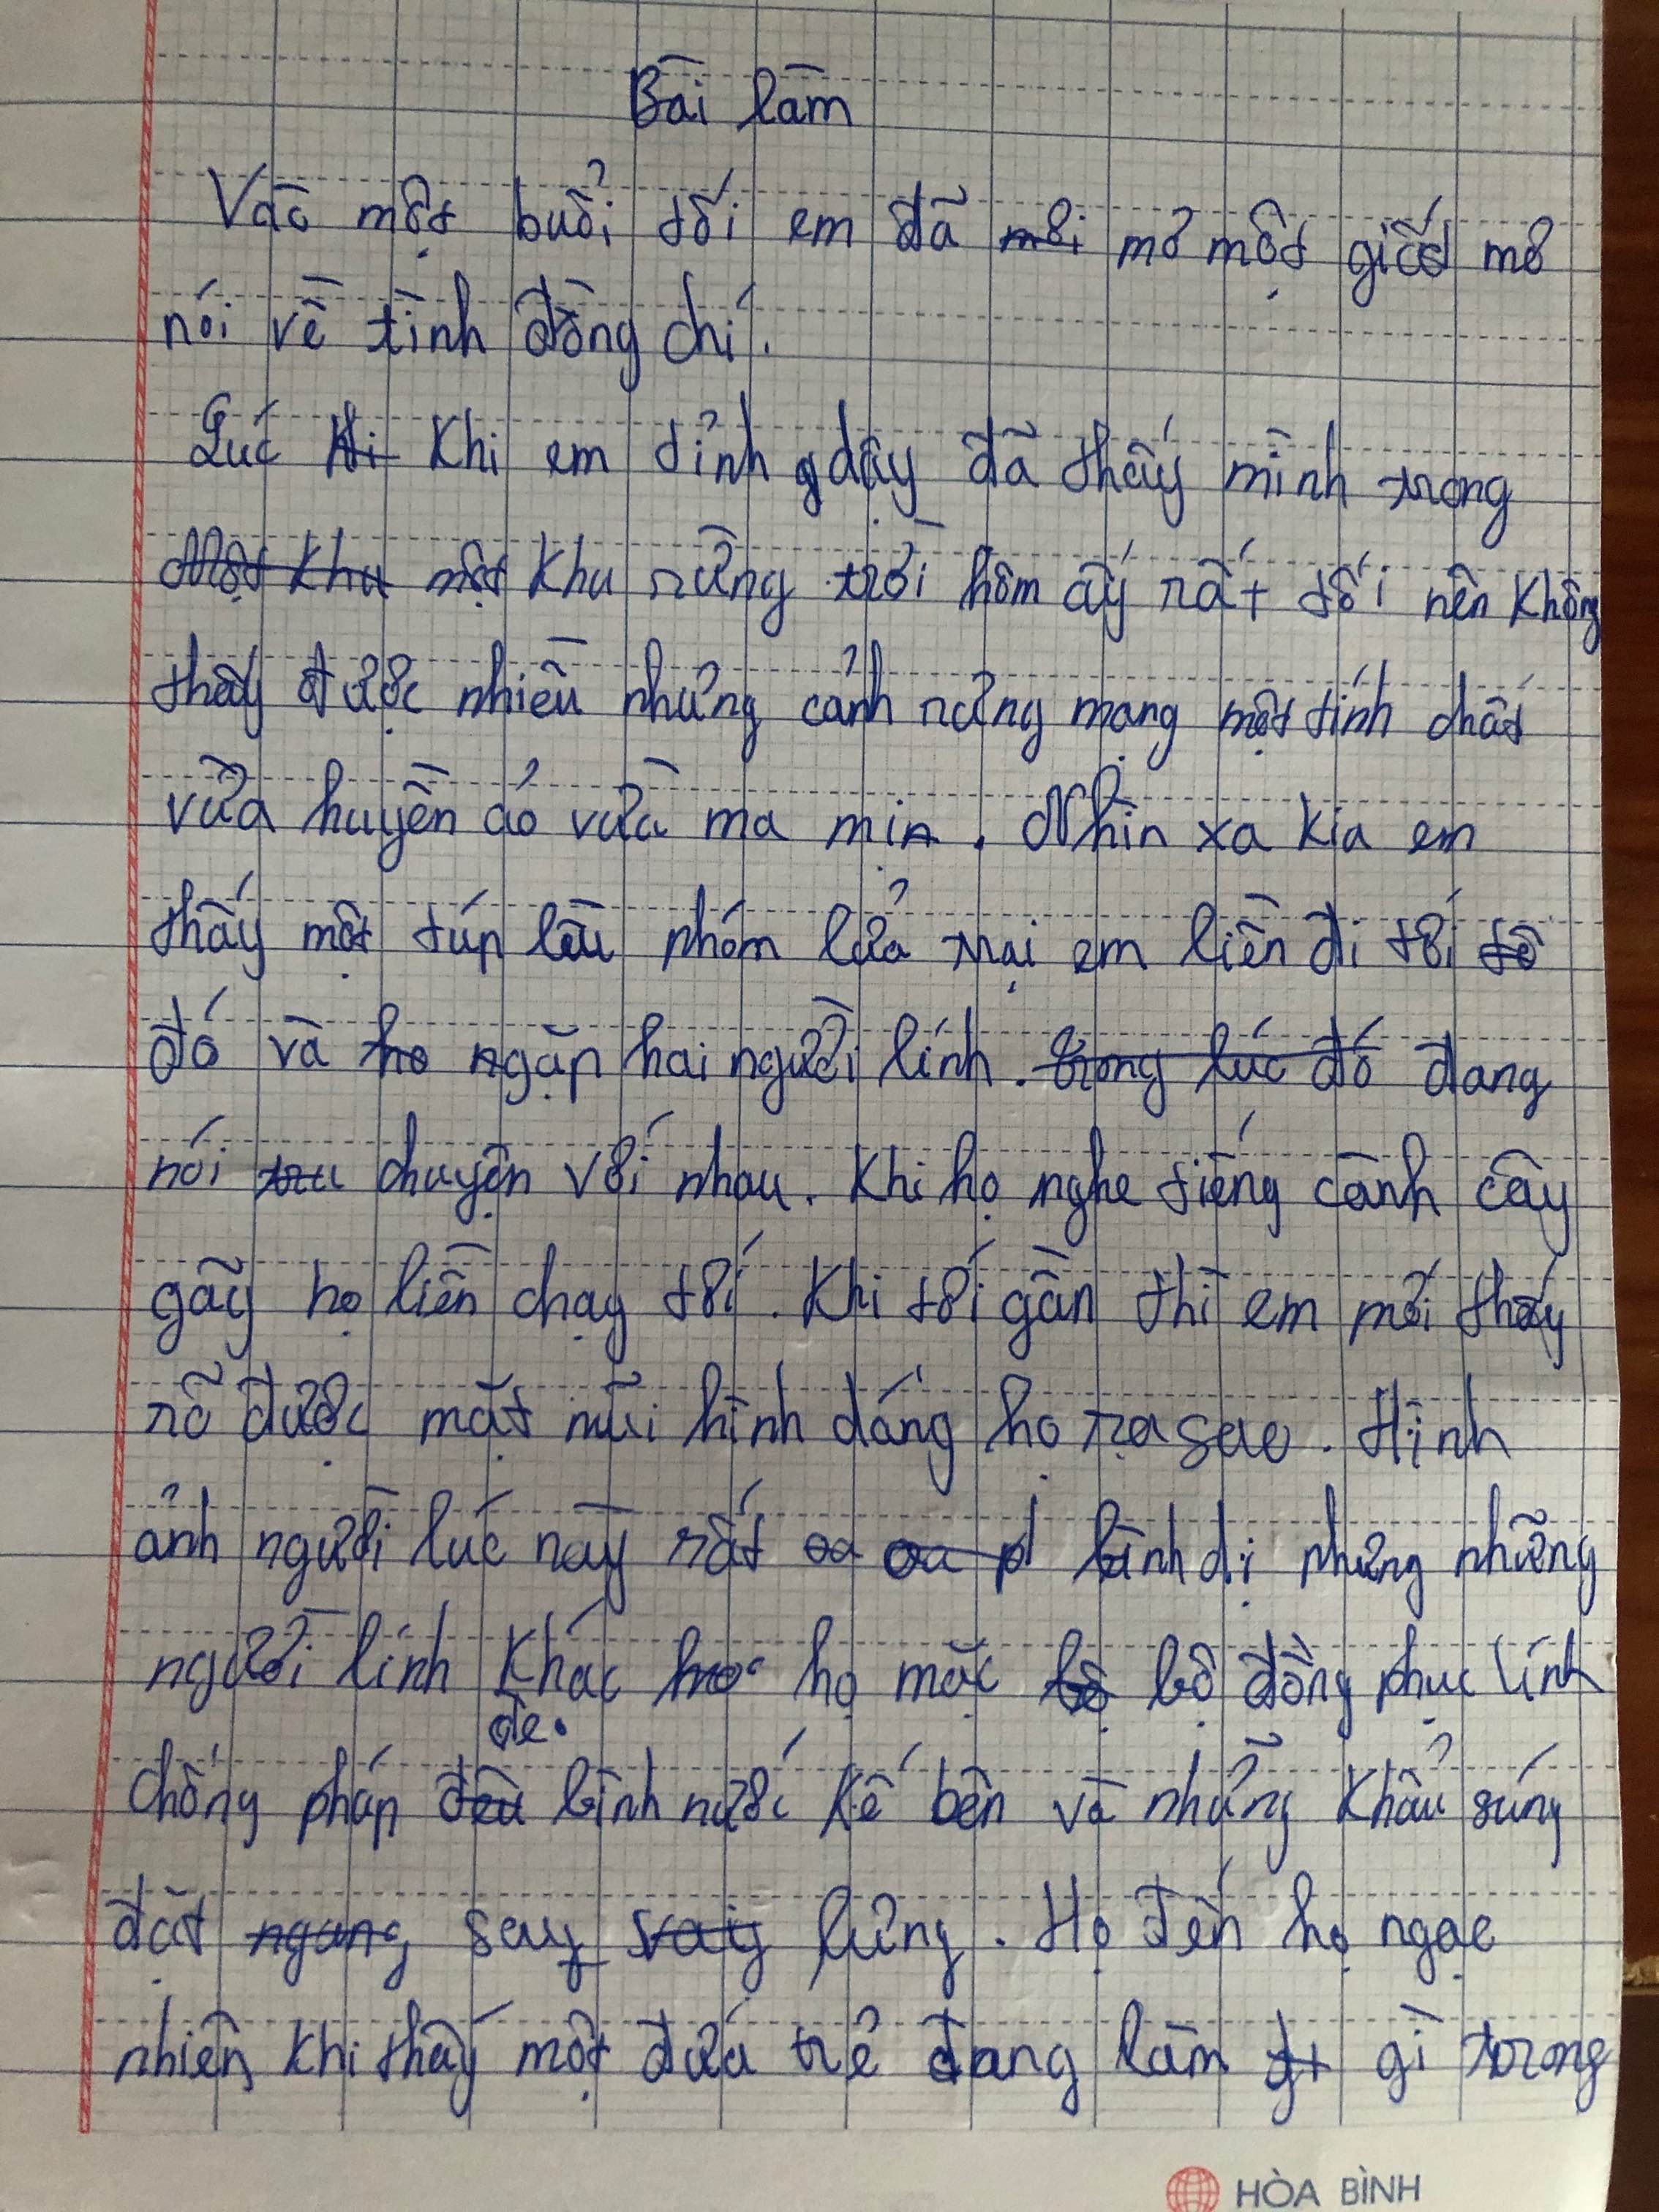 Bài làm
Vào một buổi tối em đã mơ một giấc mơ
nói về tình đồng chí.
Lúc khi em tỉnh dậy đã thấy mình trong
một khu rừng trời hôm ấy rất tối nên không
thấy được nhiều nhưng cảnh rừng mang một tính chất
vừa huyền ảo vừa ma mị. Nhìn xa kia em
thấy một túp lều nhóm lửa trại em liền đi tới
đó và gặp hai người lính. đang
nói chuyện với nhau. Khi họ nghe tiếng cành cây
gãy họ liền chạy tới. Khi tới gần thì em mới thấy
rõ được mặt mũi hình dáng họ ra sao. Hình
ảnh người lúc này rất bình dị nhưng những
người lính khác họ mặc bộ đồng phục lính
chống pháp để bình nước kế bên và những khẩu súng
đặt sau lưng. Họ đến họ ngạc
nhiên khi thấy một đứa trẻ đang làm gì trong
HÒA BÌNH